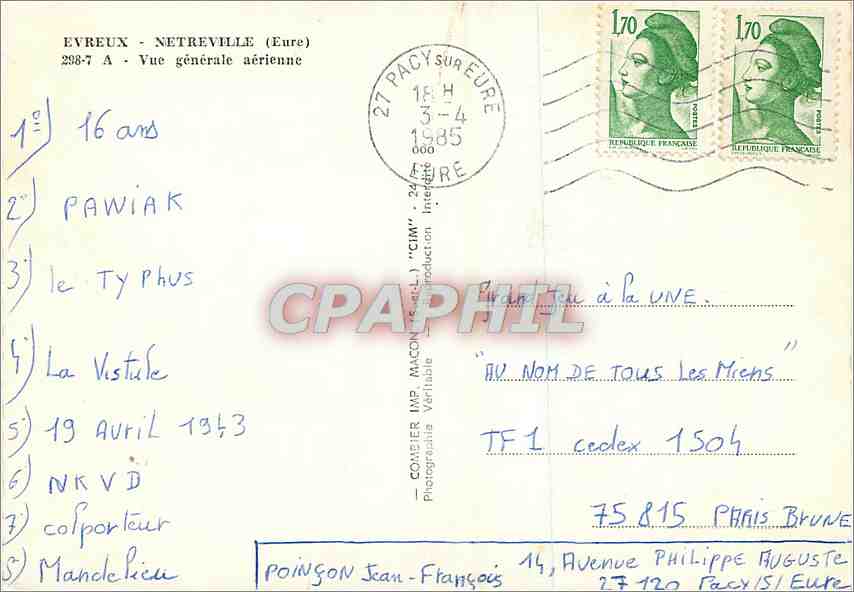 EVREUX - NETREVILLE (Eure)
298-7 A - Vue générale aérienne
1º) 16 ans
2º) PAWIAK
3º) le TYPHUS
4º) La Vistule
5º) 19 AVRIL 1943
6º) NKVD
7º) colporteur
8º) Mandelieu
27 PACY SUR EURE
18 H
3-4
1985
000
EURE
1,70
POSTES
REPUBLIQUE FRANÇAISE
1,70
POSTES
REPUBLIQUE FRANÇAISE
— COMBIER IMP. MACON (S.-et-L.) "CIM"
Photographie Véritable — Reproduction Interdite
CPAPHIL
Grand Jeu à la UNE.
"AU NOM DE TOUS Les Miens"
TF1 cedex 1504
75815 PARIS BRUNE
POINÇON Jean-François
14, Avenue PHILIPPE AUGUSTE
27120 Pacy/S/Eure